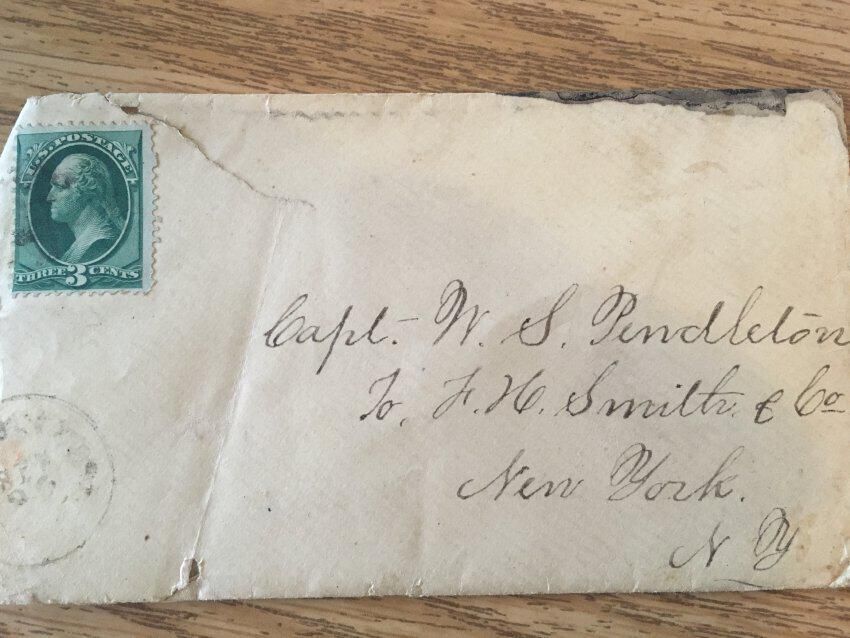 U.S. POSTAGE
THREE 3 CENTS
Capt. W. S. Pendleton
To, F. H. Smith & Co
New York.
N Y